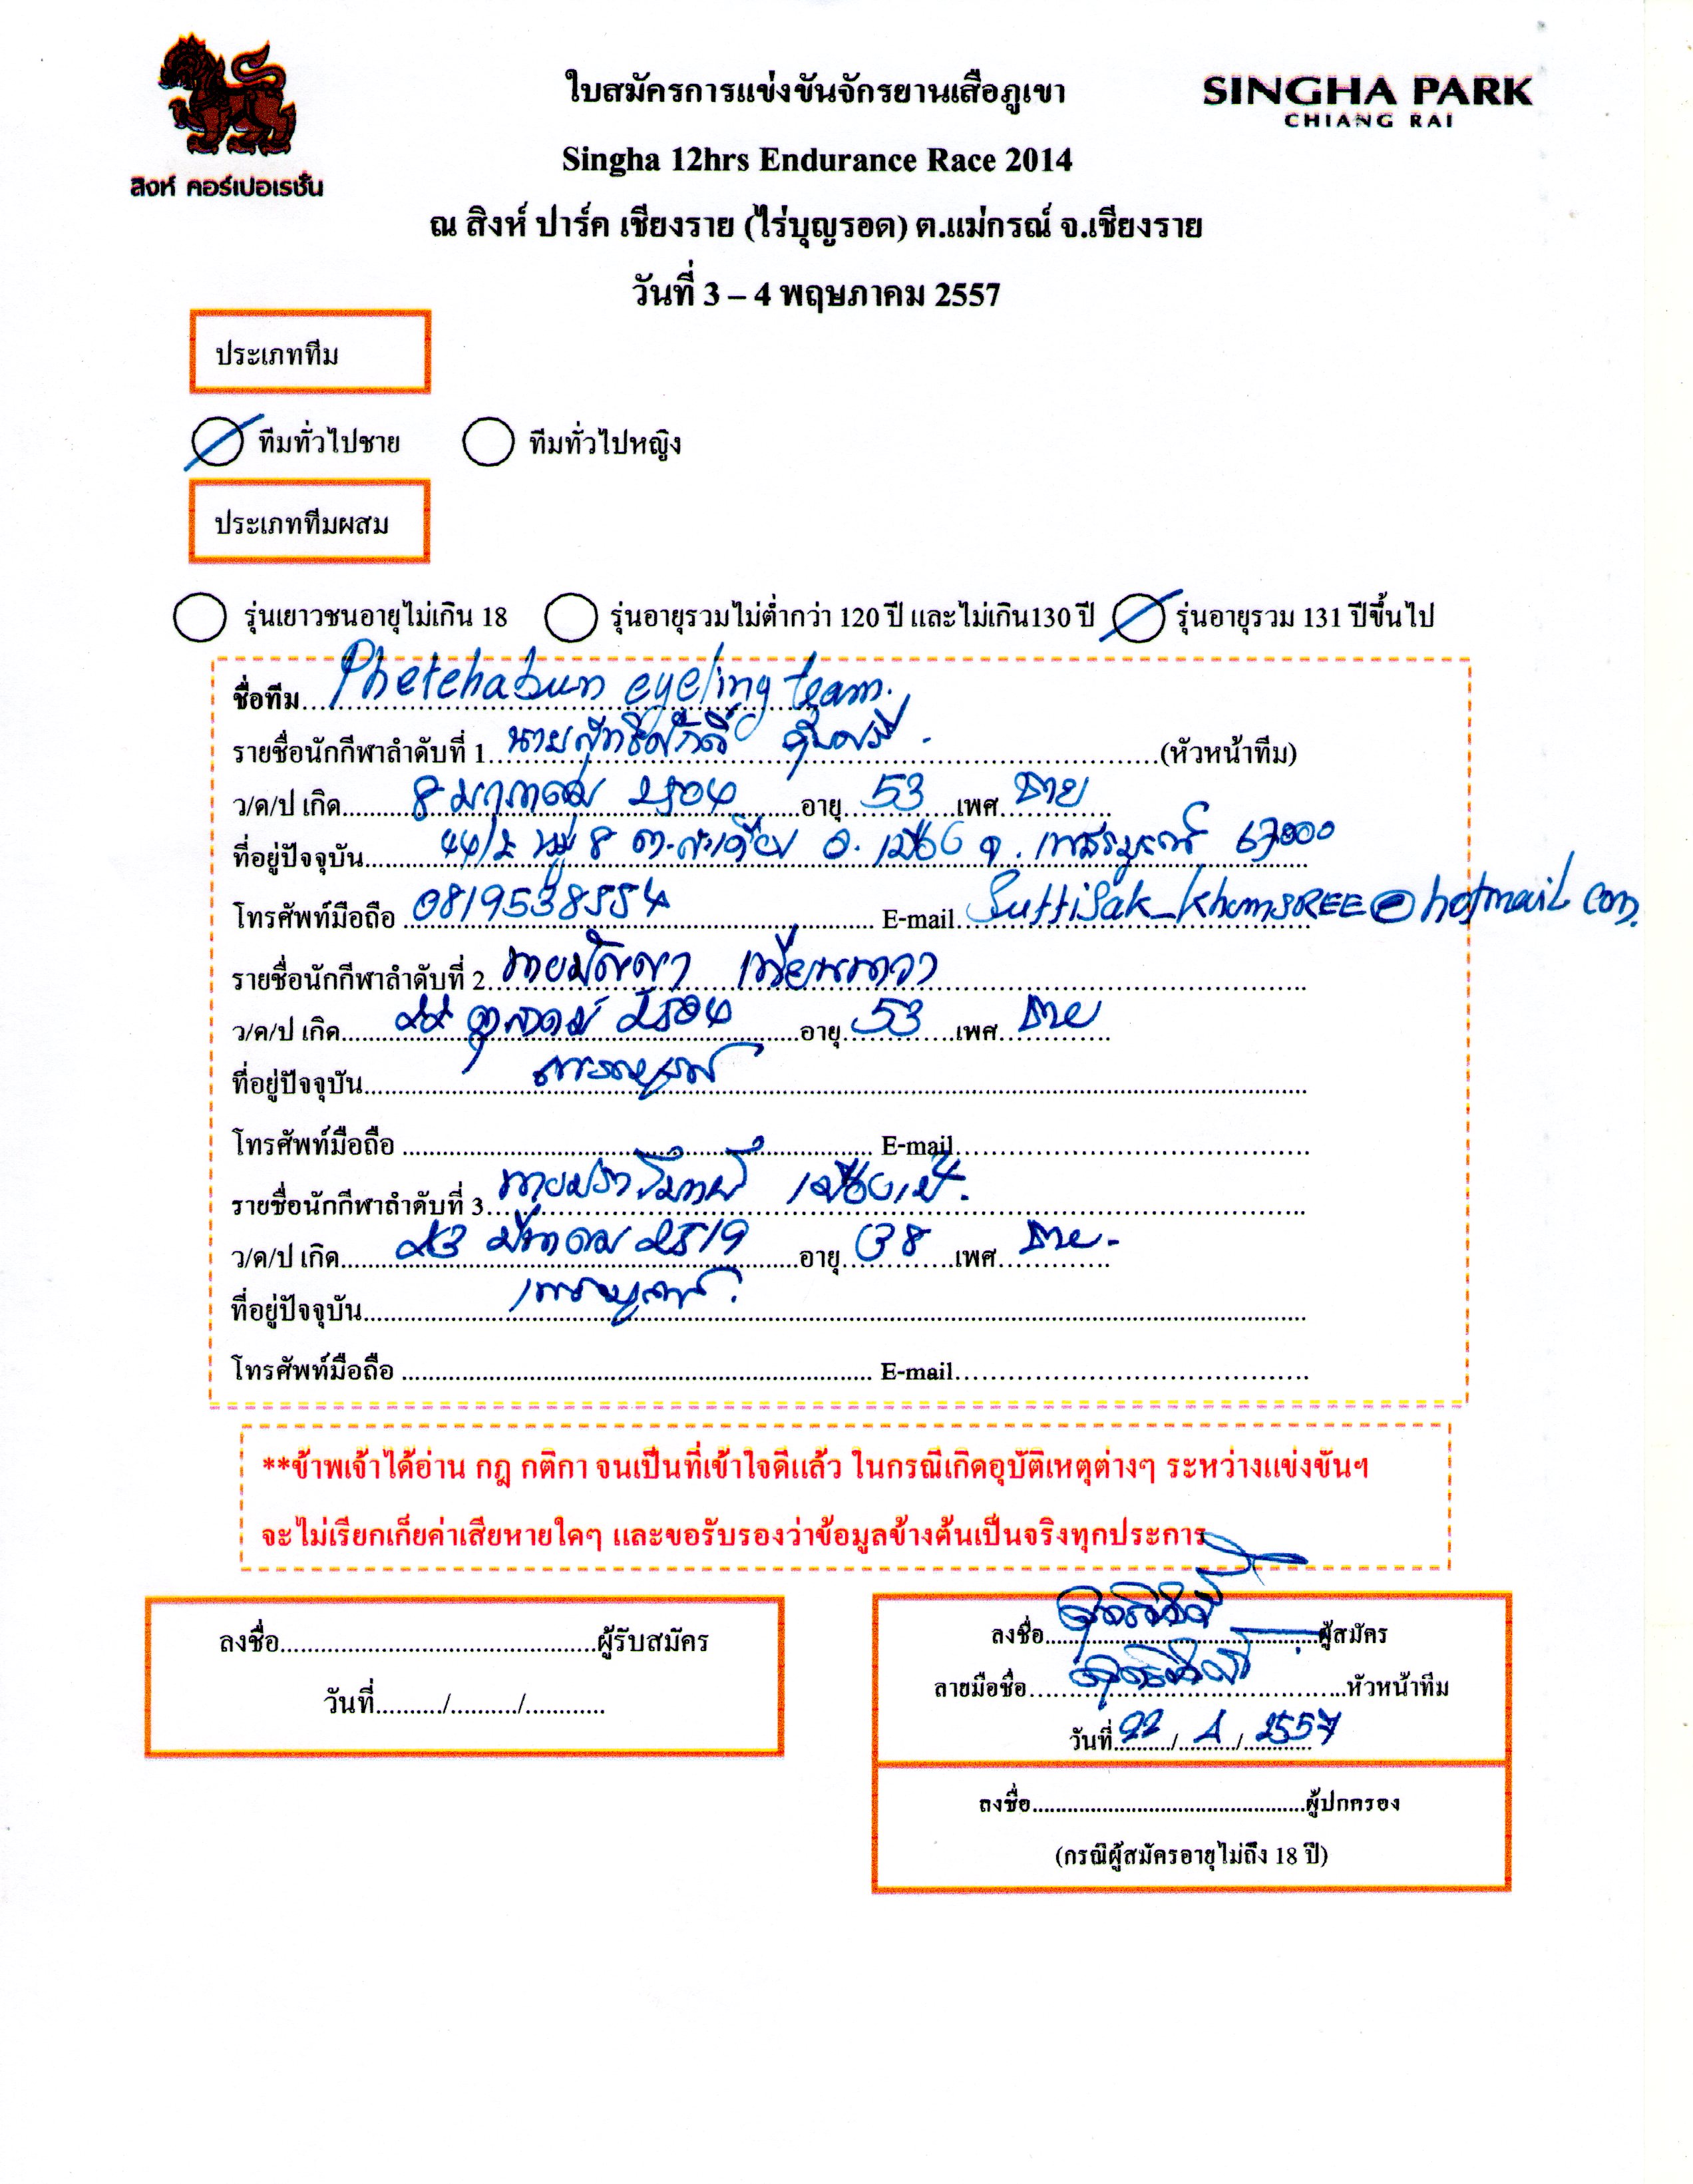 สิงห์ คอร์เปอเรชั่น
SINGHA PARK
CHIANG RAI
ใบสมัครการแข่งขันจักรยานเสือภูเขา
Singha 12hrs Endurance Race 2014
ณ สิงห์ ปาร์ค เชียงราย (ไร่บุญรอด) ต.แม่กรณ์ จ.เชียงราย
วันที่ 3 – 4 พฤษภาคม 2557
ประเภททีม
ทีมทั่วไปชาย ทีมทั่วไปหญิง
ประเภททีมผสม
รุ่นเยาวชนอายุไม่เกิน 18 รุ่นอายุรวมไม่ต่ำกว่า 120 ปี และไม่เกิน130 ปี รุ่นอายุรวม 131 ปีขึ้นไป
ชื่อทีม Phetchabun cycling team.
รายชื่อนักกีฬาลำดับที่ 1 นายสุทธิศักดิ์ (หัวหน้าทีม)
ว/ค/ป เกิด 8 มกราคม 2504 อายุ 53 เพศ ชาย
ที่อยู่ปัจจุบัน 44/2 หมู่ 8 ต.สะเดียง อ.เมือง จ.เพชรบูรณ์ 67000
โทรศัพท์มือถือ 0819538554 E-mail Suttisak_khumSREE@hotmail.com.
รายชื่อนักกีฬาลำดับที่ 2
ว/ค/ป เกิด 22 ตุลาคม 2504 อายุ 53 เพศ ชาย
ที่อยู่ปัจจุบัน เพชรบูรณ์
โทรศัพท์มือถือ E-mail
รายชื่อนักกีฬาลำดับที่ 3
ว/ค/ป เกิด 23 มีนาคม 2519 อายุ 38 เพศ ชาย
ที่อยู่ปัจจุบัน เพชรบูรณ์
โทรศัพท์มือถือ E-mail
**ข้าพเจ้าได้อ่าน กฎ กติกา จนเป็นที่เข้าใจดีแล้ว ในกรณีเกิดอุบัติเหตุต่างๆ ระหว่างแข่งขันฯ
จะไม่เรียกเก็ยค่าเสียหายใดๆ และขอรับรองว่าข้อมูลข้างต้นเป็นจริงทุกประการ
ลงชื่อ ผู้รับสมัคร
วันที่ / /
ลงชื่อ ผู้สมัคร
ลายมือชื่อ หัวหน้าทีม
วันที่ 22 / 4 / 2557
ลงชื่อ ผู้ปกครอง
(กรณีผู้สมัครอายุไม่ถึง 18 ปี)